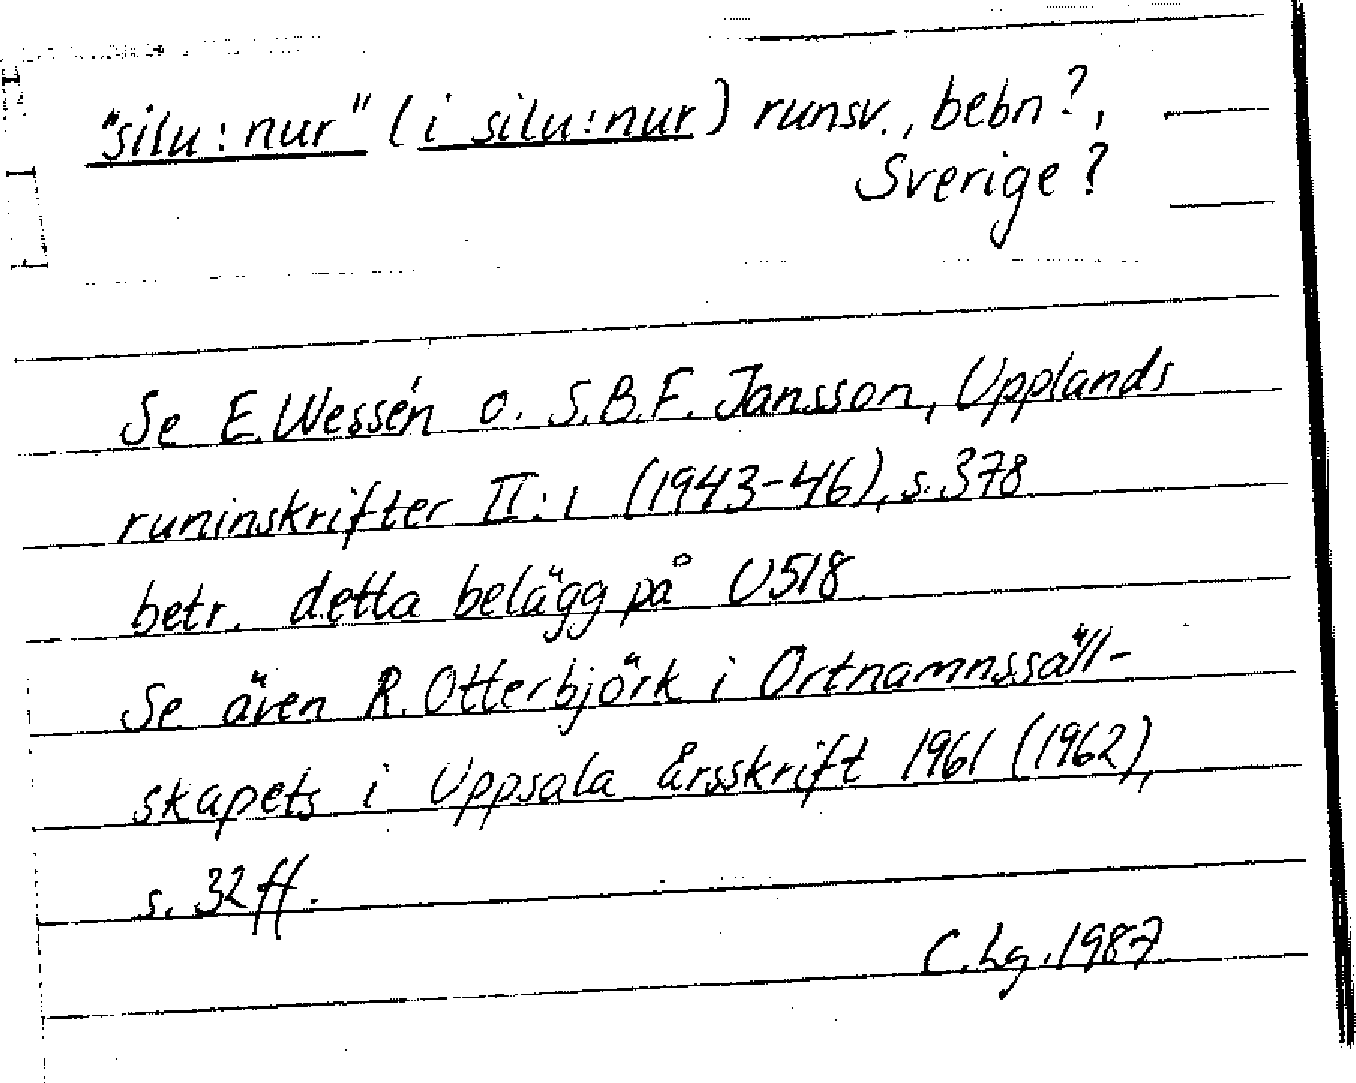 "silu:nur" (i silu:nur) runsv., bebn?,
Sverige?
Se E. Wessén o. S.B.F. Jansson, Upplands
runinskrifter II:1 (1943-46), s. 378
betr. detta belägg på U518
Se även R. Otterbjörk i Ortnamnssäll-
skapets i Uppsala årsskrift 1961 (1962),
s. 32 ff.
C.Lg. 1987